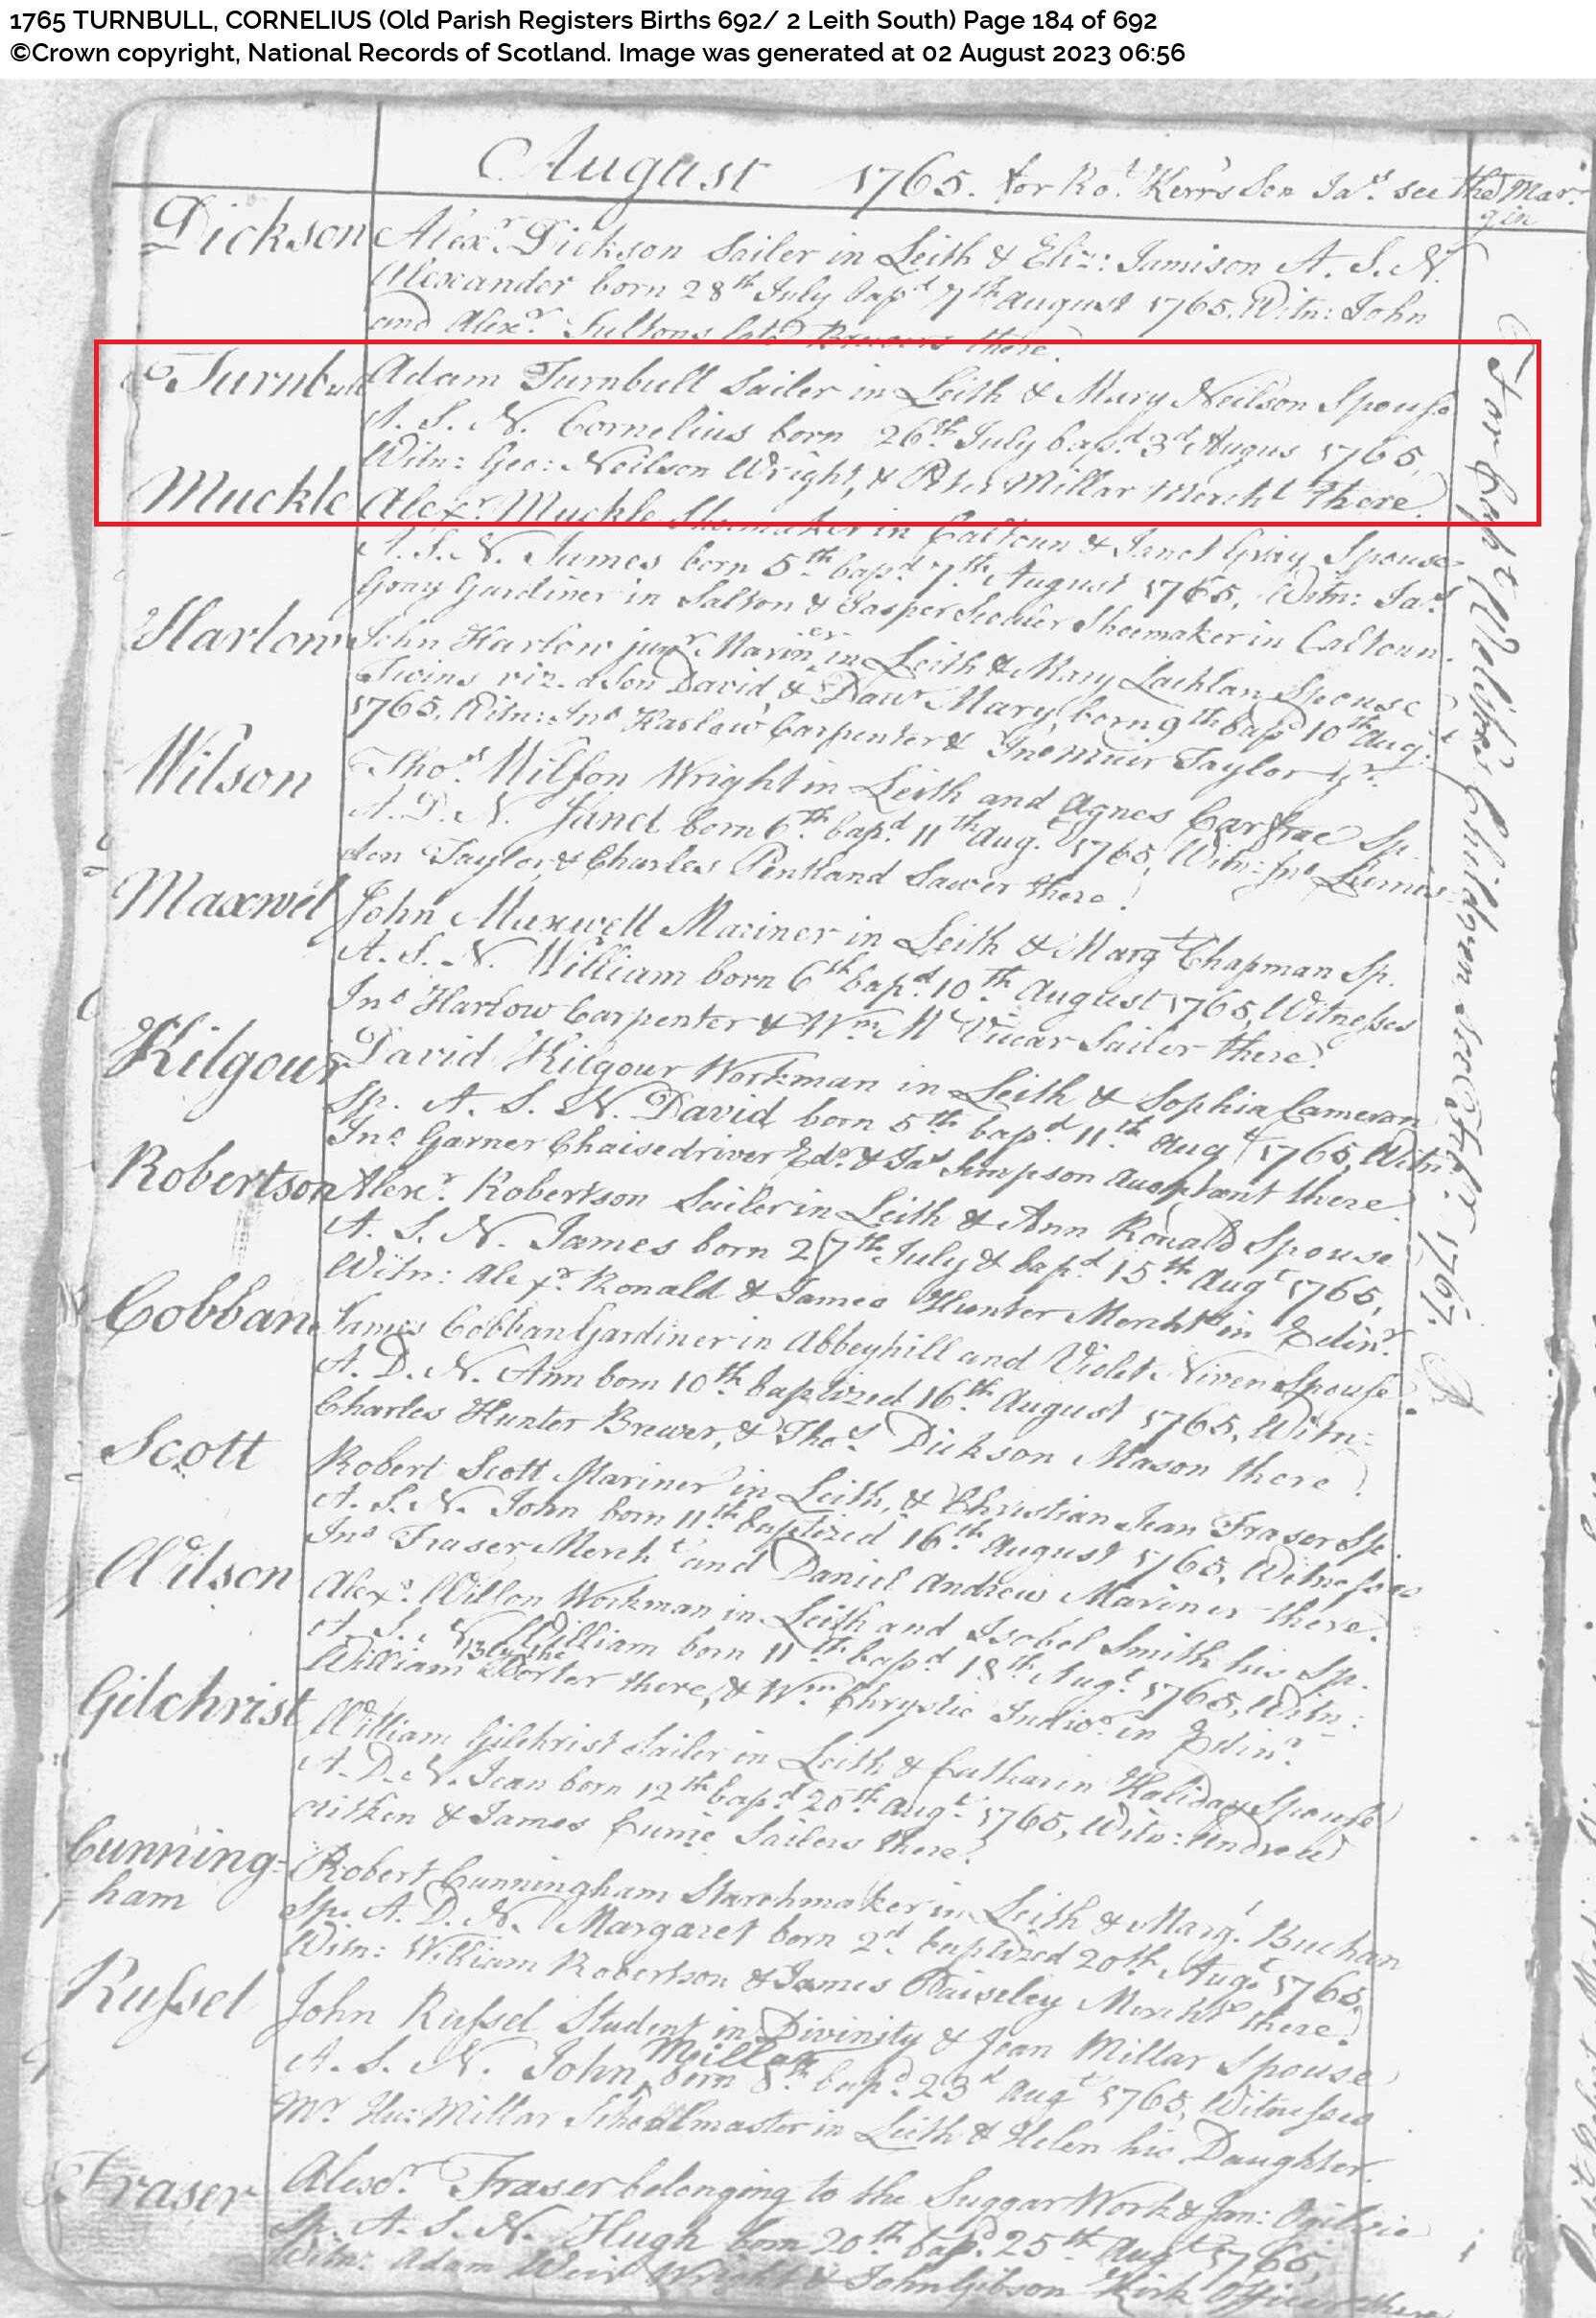 1765 TURNBULL, CORNELIUS (Old Parish Registers Births 692/ 2 Leith South) Page 184 of 692
©Crown copyright, National Records of Scotland. Image was generated at 02 August 2023 06:56
August 1765. for Rot. Kerr's Son Jas. see the Mar-
gin
Dickson Alexr. Dickson Sailer in Leith & Eliz: Jamison A. S. N.
Alexander born 28th July bapd 7th August 1765. Witn: John
and Alexr. Suttons Brewers there.
Turnbull Adam Turnbull Sailer in Leith & Mary Neilson Spouse
A. S. N. Cornelius born 26th July bapd. 3d Augus 1765,
Witn: Geo: Neilson Wright, & Peter Millar Mercht there.
Muckle Alexr. Muckle Shoemaker in Caltoun & Janet Gray Spouse
A. S. N. James born 5th bapd. 7th August 1765, Witn: Jas.
Gray Gardiner in Salton & Jasper Shoemaker in Caltoun.
Harlow John Harlow junr. Mariner in Leith & Mary Lachlan Spouse
Twins viz. a Son David & Dawr Mary, born 9th bapd 10th Augt.
1765, Witn: Jno Harlow Carpenter & Jno Muir Taylor yr.
Wilson Thos. Wilson Wright in Leith and Agnes Carfrae Sp.
A. D. N. Janet born 6th bapd. 11th Augt. 1765, Witn: Jno Lumis-
den Taylor, & Charles Pentland Sawer there.
Maxwel John Maxwell Mariner in Leith & Margt Chapman Sp.
A. S. N. William born 6th bapd. 10th August 1765, Witnesses
Jno Harlow Carpenter & Wm. McVicar Sailer there.
Kilgour David Kilgour Workman in Leith & Sophia Cameron
Sp. A. S. N. David born 5th bapd. 11th Augt 1765, Witn:
Jno. Garner Chaisedriver Edr. & Jas Simpson there.
Robertson Alexr. Robertson Sailer in Leith & Ann Ronald Spouse
A. S. N. James born 27th July & bapd. 15th Augt 1765,
Witn: Alexr. Ronald & James Hunter Merchts in Edinr.
Cobban James Cobban Gardiner in Abbeyhill and Violet Niven Spouse
A. D. N. Ann born 10th baptized 16th August 1765, Witn:
Charles Hunter Brewer, & Thos. Dickson Mason there.
Scott Robert Scott Mariner in Leith, & Christian Jean Fraser Sp.
A. S. N. John born 11th baptized 16th August 1765, Witnesses
Jno Fraser Mercht and Daniel Andrew Mariner there.
Wilson Alexr. Wilson Workman in Leith and Isobel Smith his Sp.
A. S. N. William born 11th bapd 18th Augt. 1765, Witn:
William Porter there, & Wm Chrystie in Edinr.
Gilchrist William Gilchrist Sailer in Leith & Catharin Haliday Spouse
A. D. N. Jean born 12th bapd 20th Augt. 1765, Witn: Andrew
Aitken & James Sailers there.
Cunning=
ham Robert Cunningham Starchmaker in Leith & Margt. Buchan
Sp. A. D. N. Margaret born 2d baptized 20th Augt 1765,
Witn: William Robertson & James Paiseley Merchts there.
Russel John Russel Student in Divinity & Jean Millar Spouse
Millar
A. S. N. John, born 8th bapd. 23d Augt 1765, Witnesses
Mr Hu: Millar Schoolmaster in Leith & Helen his Daughter.
Fraser Alexdr. Fraser belonging to the Suggar Work & Jan: Ogilvie
Sp. A. S. N. Hugh born 20th bapd 25th Augt 1765,
Witn: Adam Weir Wright & John Gibson Kirk Officer there
For Children see 1767.